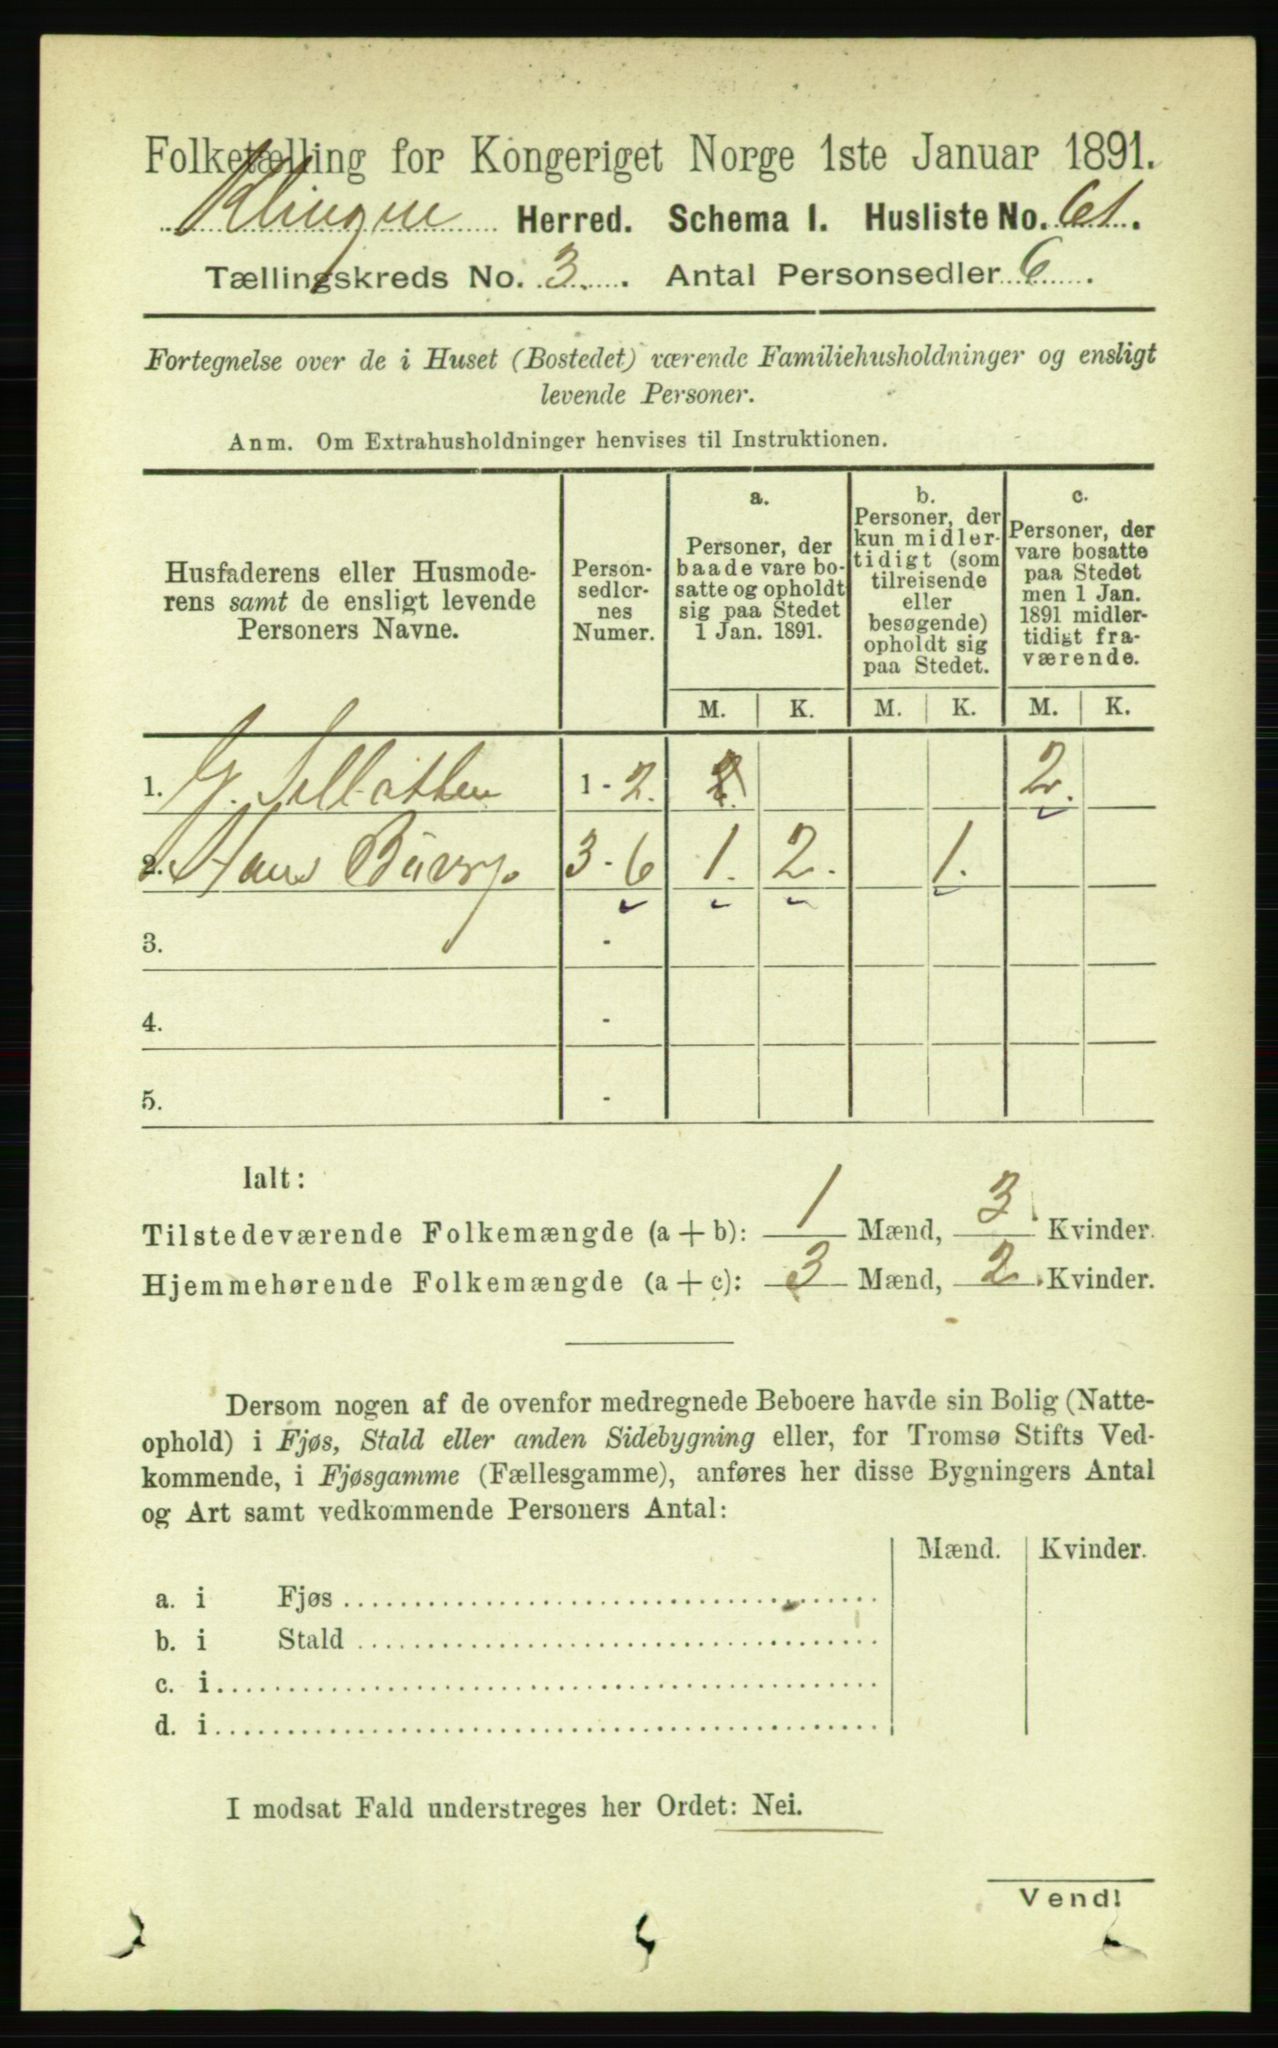 Folketælling for Kongeriget Norge 1ste Januar 1891.
Klingen Herred. Schema I. Husliste No. 61.
Tællingskreds No. 3. Antal Personsedler 6.
Fortegnelse over de i Huset (Bostedet) værende Familiehusholdninger og ensligt
levende Personer.
Anm. Om Extrahusholdninger henvises til Instruktionen.
Husfaderens eller Husmode-
rens samt de ensligt levende
Personers Navne.
Person-
sedler-
nes
Numer.
a.
Personer, der
baade vare bo-
satte og opholdt
sig paa Stedet
1 Jan. 1891.
b.
Personer, der
kun midler-
tidigt (som
tilreisende
eller
besøgende)
opholdt sig
paa Stedet.
c.
Personer, der
vare bosatte
paa Stedet
men 1 Jan.
1891 midler-
tidigt fra-
værende.
M. K. M. K. M. K.
1. G. 1 - 2. 2.
2. Hans 3 - 6 1. 2. 1.
3. -
4. -
5. -
Ialt:
Tilstedeværende Folkemængde (a + b): 1 Mænd, 3 Kvinder.
Hjemmehørende Folkemængde (a + c): 3 Mænd, 2 Kvinder.
Dersom nogen af de ovenfor medregnede Beboere havde sin Bolig (Natte-
ophold) i Fjøs, Stald eller anden Sidebygning eller, for Tromsø Stifts Ved-
kommende, i Fjøsgamme (Fællesgamme), anføres her disse Bygningers Antal
og Art samt vedkommende Personers Antal:
Mænd. Kvinder.
a. i Fjøs
b. i Stald
c. i
d. i
I modsat Fald understreges her Ordet: Nei.
Vend!